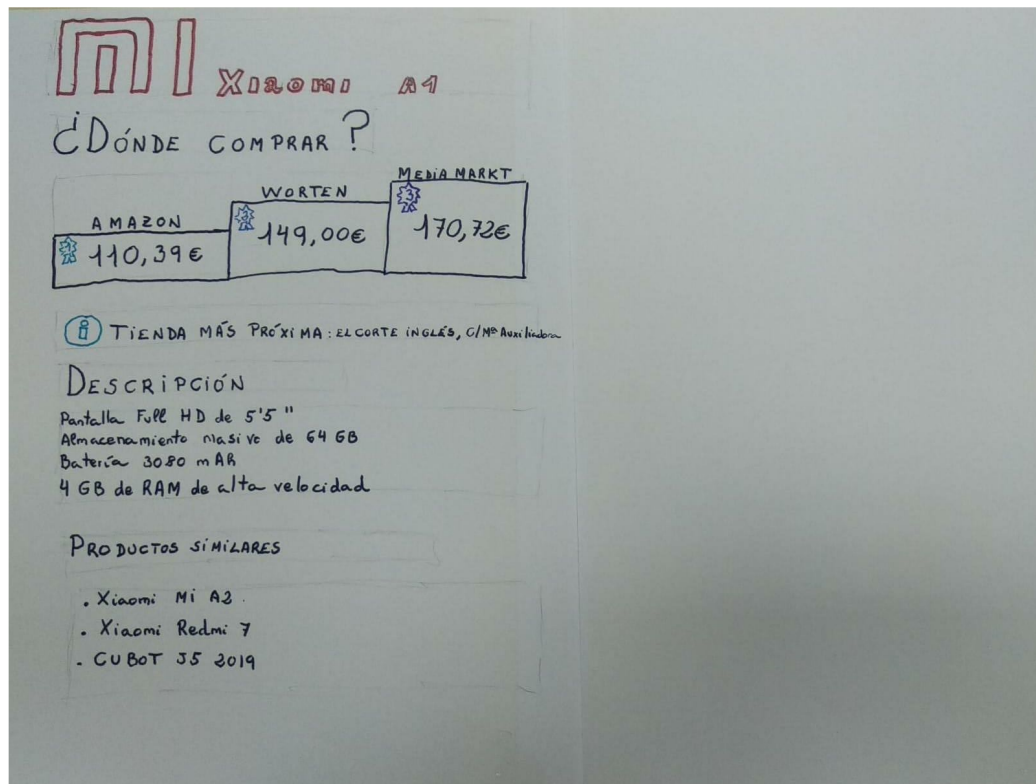 MI Xiaomi A1
¿DÓNDE COMPRAR?
AMAZON
1 110,39€
WORTEN
2 149,00€
MEDIA MARKT
3 170,72€
i TIENDA MÁS PRÓXIMA: EL CORTE INGLÉS, C/Mª Auxiliadora
DESCRIPCIÓN
Pantalla Full HD de 5'5"
Almacenamiento masivo de 64 GB
Batería 3080 mAh
4 GB de RAM de alta velocidad
PRODUCTOS SIMILARES
. Xiaomi Mi A2
. Xiaomi Redmi 7
. CUBOT J5 2019